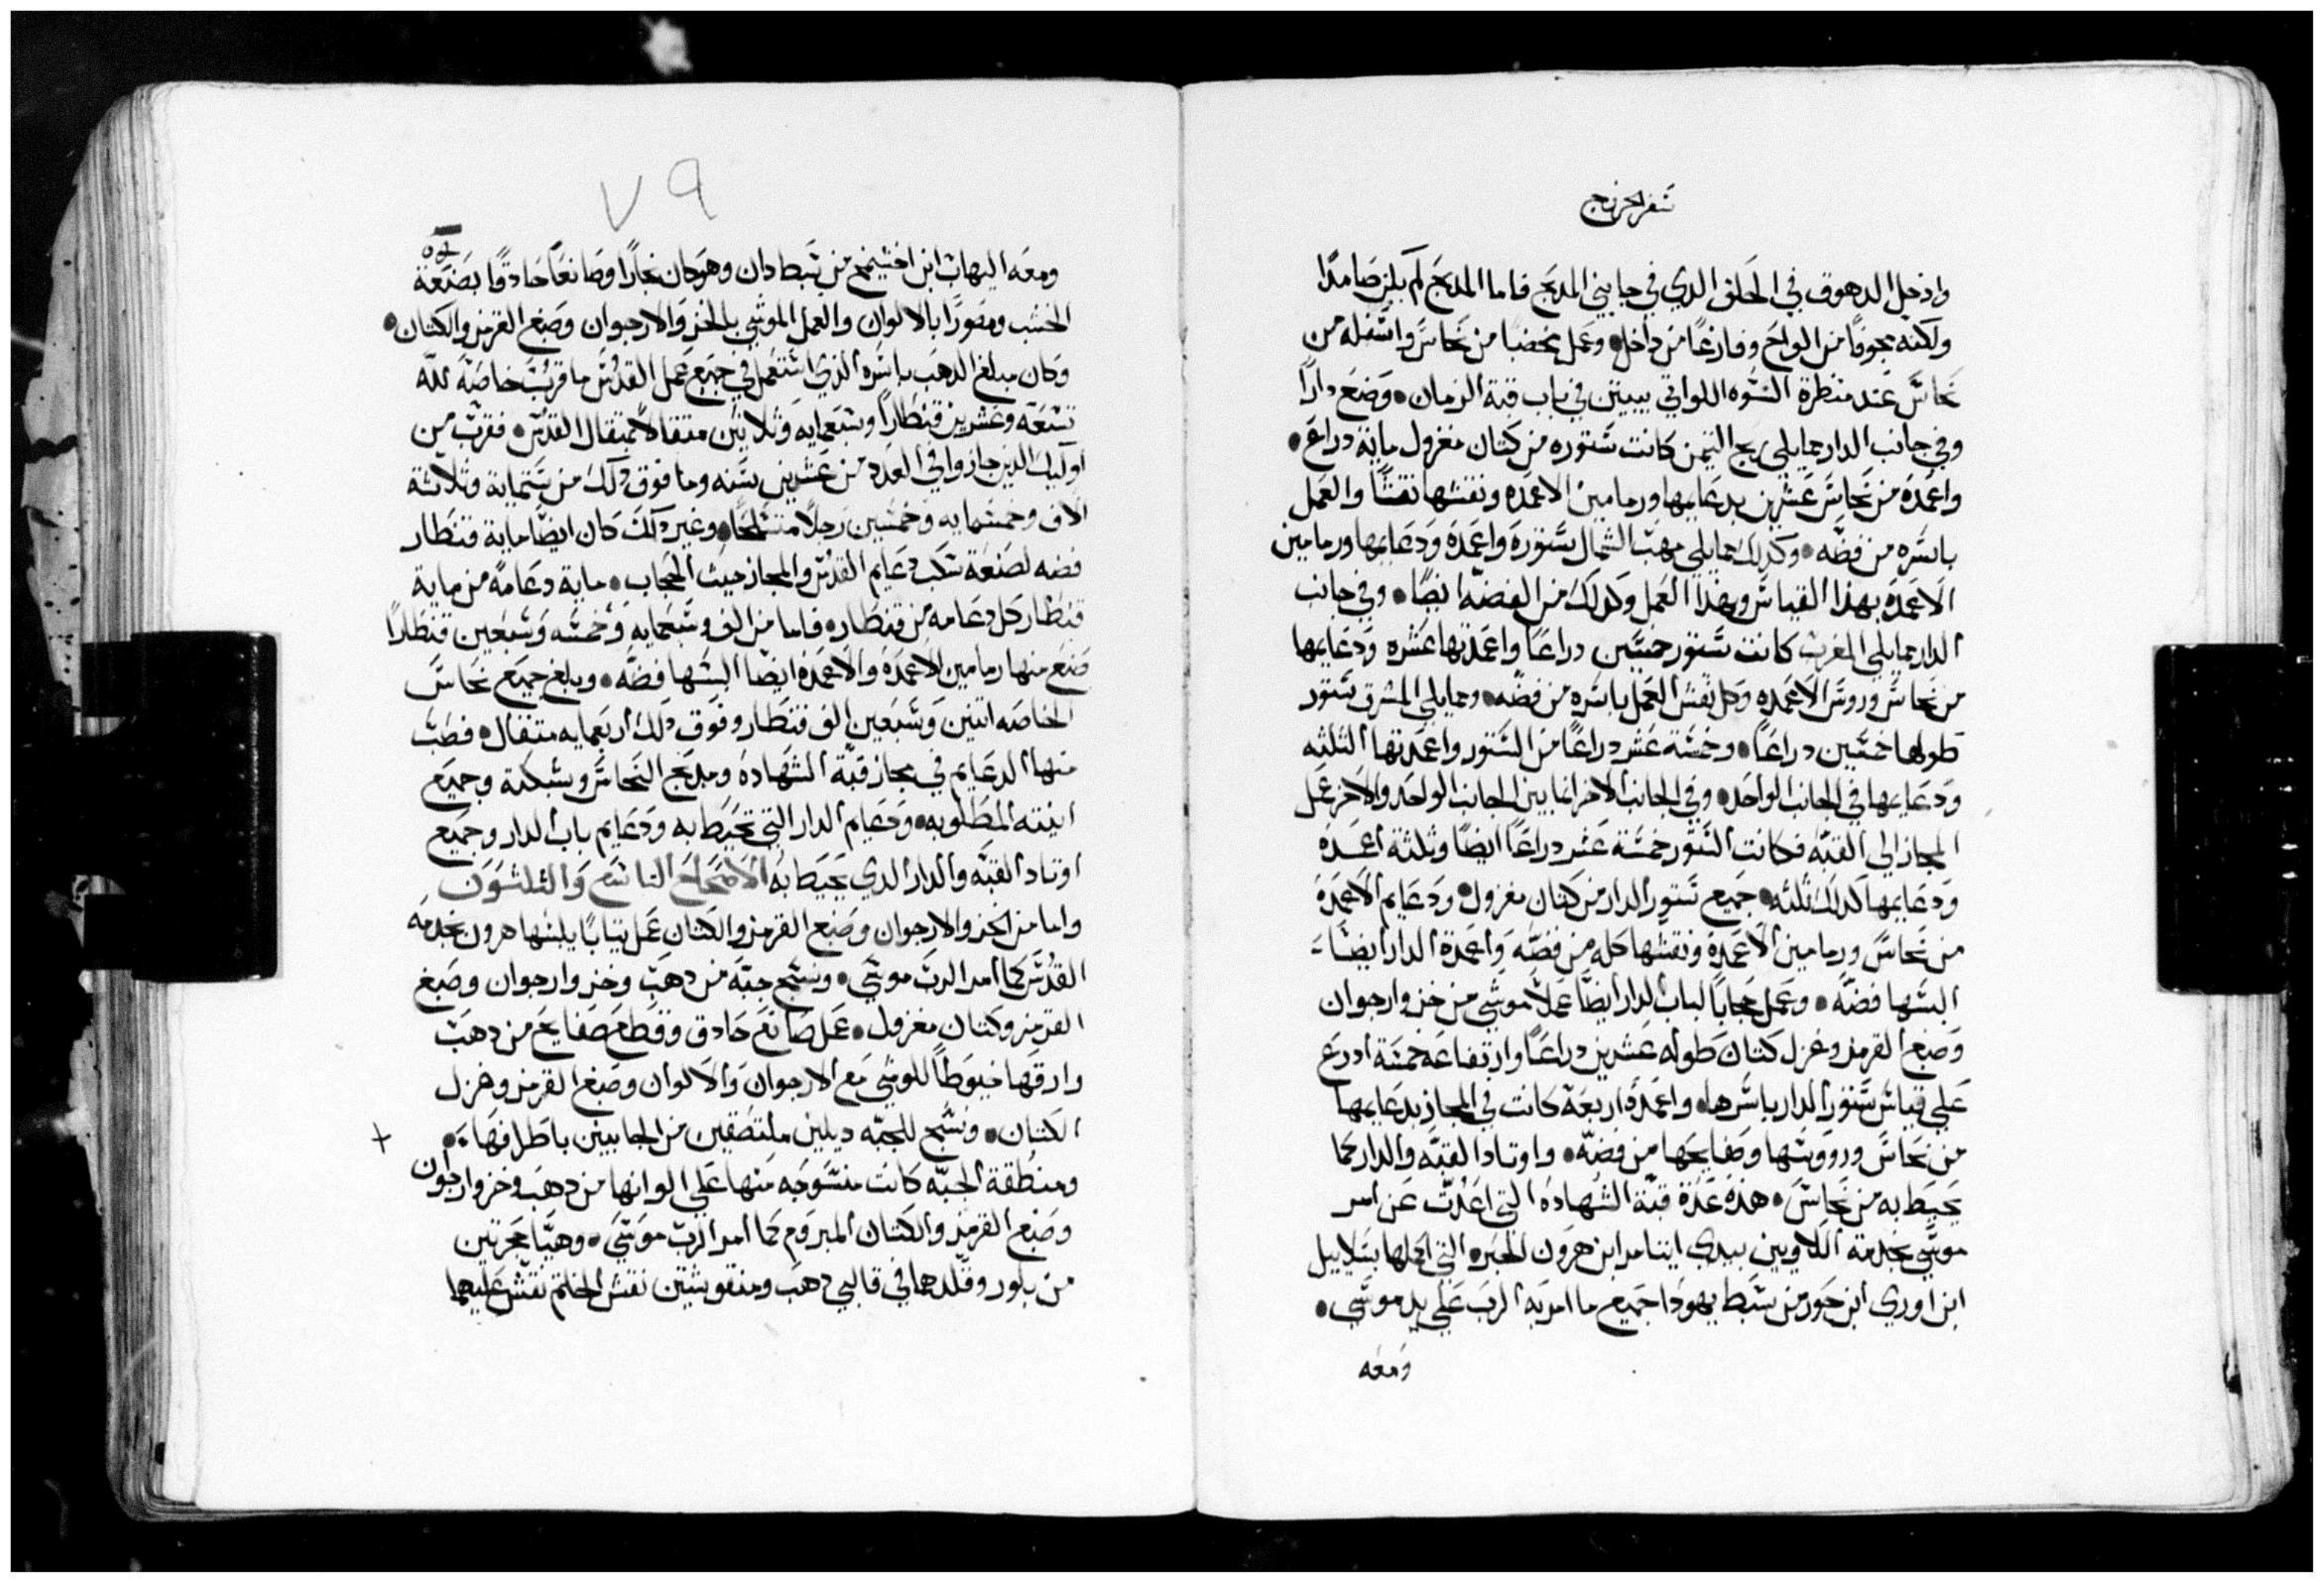 سفر الخروج
وادخل الدهوق في الحلق الدي في جانبي المدبح فاما المدبح لم يكن صامدًا
ولكنه مجوفًا من الواح وفارغًا من داخل وعمل مخضبا من نحاس واسفله من
نحاس عند منظرة النسوه اللواتي يبيتن في باب قبة الزمان وصنع دارًا
وفي جانب الدار مما يلي ريح التيمن كانت ستوره من كتان مغزول ماية دراع
واعمدة من نحاس عشرين بدعايمها ورمامين الاعمدة ونقشها نقشًا والعمل
باسره من فضه وكدلك مما يلي مهب الشمال ستوره واعمدة ودعايمها ورمامين
الاعمدة بهدا القياس وبهدا العمل وكدلك من الفضه ايضًا وفي جانب
الدار مما يلي المغرب كانت ستور خمسين دراعًا واعمدتها عشره ودعايمها
من نحاس وروس الاعمده وكل نقش العمل باسره من فضه ومما يلي المشرق ستور
طولها خمسين دراعًا وخمسة عشر دراعًا من الستور واعمدتها الثلثه
ودعايمها في الجانب الواحد وفي الجانب الاخر انما بين الجانب الواحد والاخر عمل
المجاز الي القبه فكانت الستور خمسة عشر دراعًا ايضًا وثلثة اعمدة
ودعايمها كدلك ثلثه جميع ستور الدار من كتان مغزول ودعايم الاعمدة
من نحاس ورمامين الاعمدة ونقشها كله من فضه واعمدة الدار ايضًا
البسها فضه وعمل حجابًا لباب الدار ايضًا عملاً موشي من خز وارجوان
وصبغ القرمز وغزل كتان طوله عشرين دراعًا وارتفاعه خمسة ادرع
علي قياس ستور الدار باسرها واعمدة اربعة كانت في المجاز بدعايمها
من نحاس وروويسها وصفايحها من فضه واوتاد القبه والدار كما
يحيط به من نحاس هذه عدة قبة الشهاده التي اعدت عن امر
موسي بخدمة اللاويين بيدي ايتامر ابن هرون الحبر التي اكملها بتلاييل
ابن اوري ابن حور من سبط يهودا جميع ما امر به الرب علي يد موسي
ومعه
٧٩
ومعه اليهاب ابن اخشيمخ من سبط دان وهو كان نجارًا وصانعًا حادقًا بصنعة
الخشب ومصورًا بالالوان والعمل الموشي بالخز والارجوان وصبغ القرمز والكتان
وكان مبلغ الدهب باسره الذي استعمل في جميع عمل القدس ما قربت خاصة لله
تسعة وعشرين قنطارًا وسبعمايه وثلاثين مثقالاً بمثقال القدس فقربت من
اوليك الذين جازوا في العدد من عشرين سنه وما فوق دلك من ستماية وثلاثة
الاف وخمسمايه وخمسين رجلاً متسلحًا وغير دلك كان ايضًا ماية قنطار
فضه لصنعة سكب دعايم القدس والمجاز حيث الحجاب ماية دعامة من ماية
قنطار كل دعامه من قنطار فاما من الف وسبعمايه وخمسه وسبعين قنطارًا
صنع منها رمامين الاعمدة والاعمدة ايضًا البسها فضه وبلغ جميع نحاس
الخاصه اتنين وسبعين الف قنطار وفوق دلك اربعمايه مثقال فصب
منها الدعايم في مجاز قبة الشهاده ومدبح النحاس وشبكته وجميع
انيته المطلوبه ودعايم الدار التي تحيط به ودعايم باب الدار وجميع
اوتاد القبه والدار الدي يحيط به الاصحاح التاسع والثلثون
واما من الخز والارجوان وصبغ القرمز والكتان عمل تيابًا يلبسها هرون بخدمة
القدس كما امر الرب موسي ونسج جبة من دهب وخز وارجوان وصبغ
القرمز وكتان مغزول عمل صانع حادق وقطع صفايح من دهب
وارقها خيوطًا للوشي مع الارجوان والالوان وصبغ القرمز وغزل
الكتان ونسج للجبه ديلين ملتصقين من الجانبين باطرافها
ومنطقة الجبه كانت منسوجه منها علي الوانها من دهب وخز وارجوان
وصبغ القرمز والكتان المبروم كما امر الرب موسي وهيا حجرتين
من بلور وقلدهما في قالبي دهب ومنقوشتين نقش الخاتم نقش عليهما